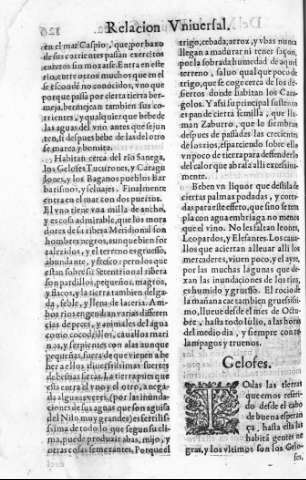 Relacion Vniuersal.
en el mar Caspio, que por baxo
de sus corrientes passan exercitos
enteros sin mojarse. Entra en este
rio, entre otros muchos que en el
se esconde no conocidos, vno que
porque passa por cierta tierra ber-
meja, bermejean tambien sus cor-
rientes, y qualquier que bebe de
las aguas del vno antes que se jun-
ten, si despues bebe de las del otro
se marea y bomita.
Habitan cerca del rio Sanega,
los Gelofes Tucurones, y Caragu-
liones, y los Baganos pueblos Bar
barissimos, y seluajes. Finalmente
entra en el mar con dos puertos.
El vno tiene vna milla de ancho,
y es cosa admirable, que los mora
dores de la ribera Meridional son
hombres negros, aunque bien for
calezidos, y el terreno es grueso,
abundante, y fresco: pero los que
estan sobre la Setentrional ribera
son pardillos, pequeños, magros,
y flacos, y la tierra tambien delga-
da, feble, y llena de laceria. Am-
bos rios engendran varias differen
cias de peces, y animales del agua
como cocodrillos, cauallos mari-
nos, y serpientes con alas aunque
pequeñas, fuera de que vienen a be
ber a ellos diuersissimas suertes
de bestias fieras. La tierra pues que
esta entre el vno y el otro, anega-
da algunas vezes, (por las inundacio
nes de sus aguas que son aguisa
del Nilo muy grandes) es fertilissi
ma de todo lo que segun su cli
ma, puede produzir abas, mijo, y
otras cosas semejantes. Porque el
trigo, cebada, arroz, y vbas nunca
llegan a madurar ni tener sazon,
por la sobrada humedad de aquel
terreno, saluo qual que poco de
trigo, que se coge cerca de los de-
siertos donde habitan los Cara-
golos. Y assi su principal sustento
es pan de cierta semilla, que lla-
man Zaburro, que lo siembran
despues de passadas las crecientes
de los rios, esparziendo sobre ella
vn poco de tierra para defenderlo
del calor que abrasa alli excessiua-
mente.
Beben vn liquor que destila de
ciertas palmas podadas, y corta-
das para este effeto, que sino se tem
pla con agua embriaga no menos
que el vino. No les faltan leones,
Leopardos, y Elefantes. Los caua-
llos que aciertan alleuar alli los
mercaderes, viuen poco, y el ayre,
por las muchas lagunas que de-
xan las inundaciones de los rios,
es humido y grueso. El rocio de
la mañana cae tambien gruessissi-
mo, llueue desde el mes de Octu-
bre, hasta todo Iulio, a las horas
del medio dia, y siempre con re-
lampagos y truenos.
Gelofes.
TOdas las tierras
que emos referi-
do desde el cabo
de buena esperan
ça, hasta esta las
habitā gentes ne
gras, y los vltimos son los Gelo-
fes,